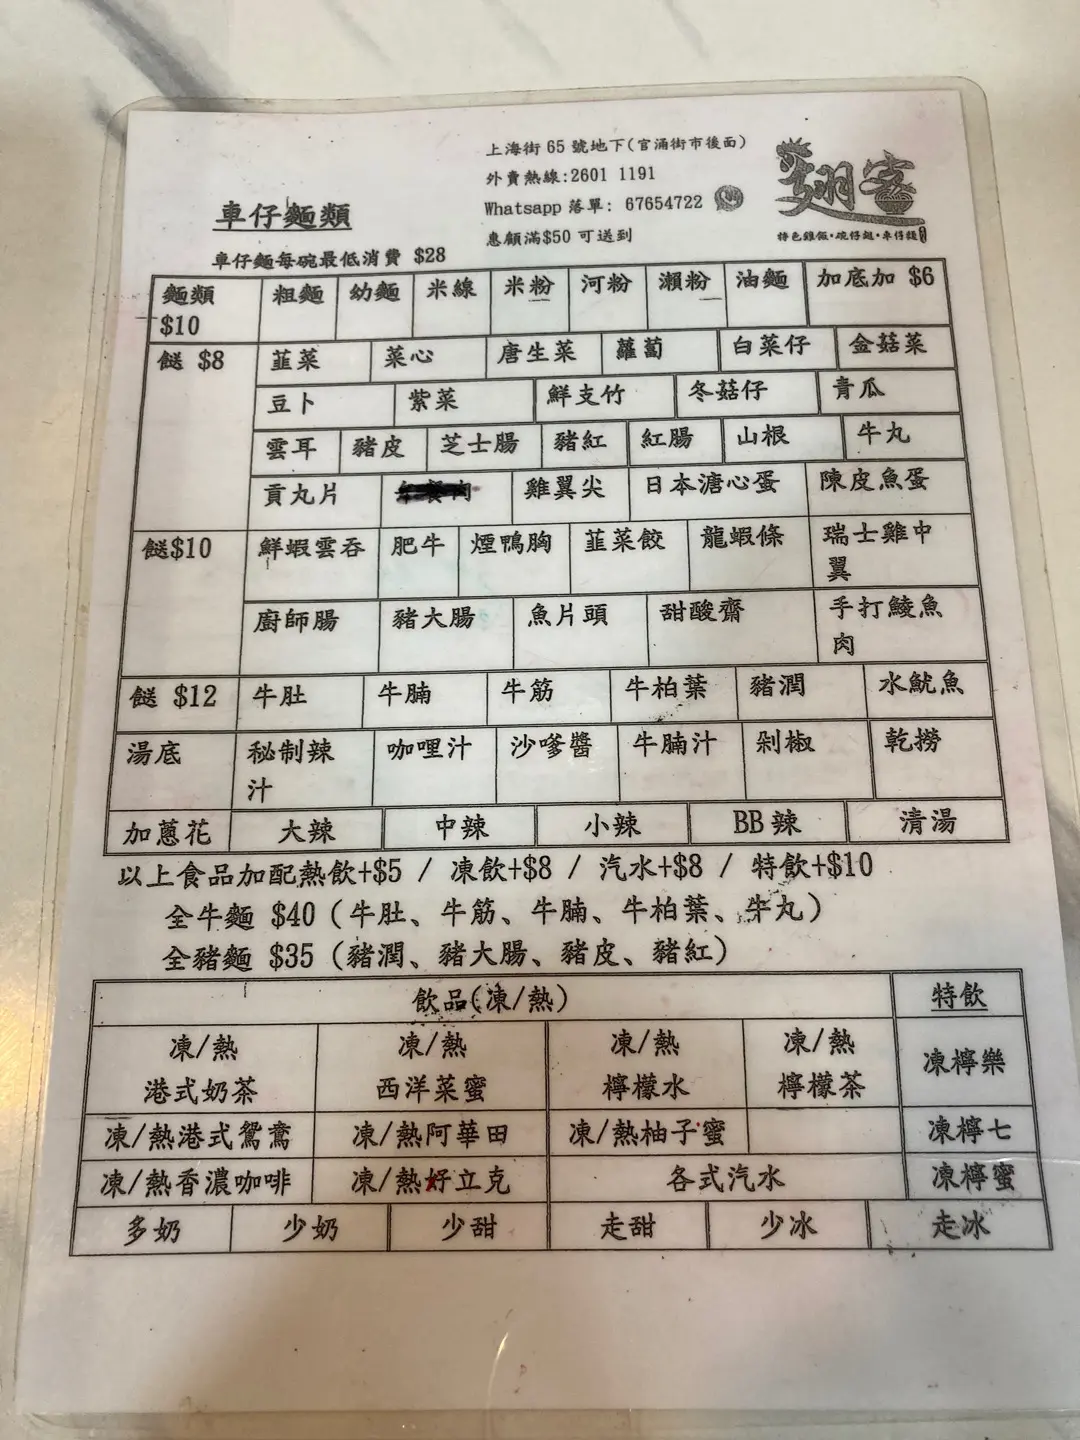 上海街 65 號地下(官涌街市後面)
外賣熱線:2601 1191
Whatsapp 落單: 67654722
惠顧滿$50 可送到
翅客
特色雞飯·碗仔翅·車仔麵
車仔麵類
車仔麵每碗最低消費 $28
麵類 $10 粗麵 幼麵 米線 米粉 河粉 瀨粉 油麵 加底加 $6
餸 $8 韮菜 菜心 唐生菜 蘿蔔 白菜仔 金菇菜
豆卜 紫菜 鮮支竹 冬菇仔 青瓜
雲耳 豬皮 芝士腸 豬紅 紅腸 山根 牛丸
貢丸片 雞翼尖 日本溏心蛋 陳皮魚蛋
餸$10 鮮蝦雲吞 肥牛 煙鴨胸 韮菜餃 龍蝦條 瑞士雞中翼
廚師腸 豬大腸 魚片頭 甜酸齋 手打鯪魚肉
餸 $12 牛肚 牛腩 牛筋 牛柏葉 豬潤 水魷魚
湯底 秘制辣汁 咖哩汁 沙嗲醬 牛腩汁 剁椒 乾撈
加蔥花 大辣 中辣 小辣 BB 辣 清湯
以上食品加配熱飲+$5 / 凍飲+$8 / 汽水+$8 / 特飲+$10
全牛麵 $40 (牛肚、牛筋、牛腩、牛柏葉、牛丸)
全豬麵 $35 (豬潤、豬大腸、豬皮、豬紅)
飲品(凍/熱) 特飲
凍/熱 凍/熱 凍/熱 凍/熱 凍檸樂
港式奶茶 西洋菜蜜 檸檬水 檸檬茶
凍/熱港式鴛鴦 凍/熱阿華田 凍/熱柚子蜜 凍檸七
凍/熱香濃咖啡 凍/熱好立克 各式汽水 凍檸蜜
多奶 少奶 少甜 走甜 少冰 走冰